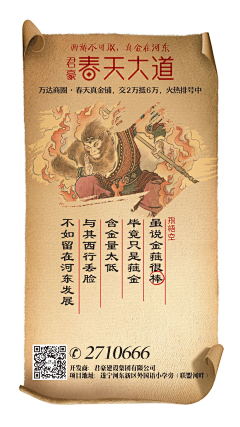 西游不可取，真金在河东
君豪
春天大道
万达商圈·春天真金铺，交2万抵6万，火热排号中
孙悟空
虽说金箍很棒
毕竟只是箍金
含金量太低
与其西行丢脸
不如留在河东发展
✆ 2710666
开发商：君豪建设集团有限公司
项目地址：遂宁河东新区外国语小学旁（联盟河畔）